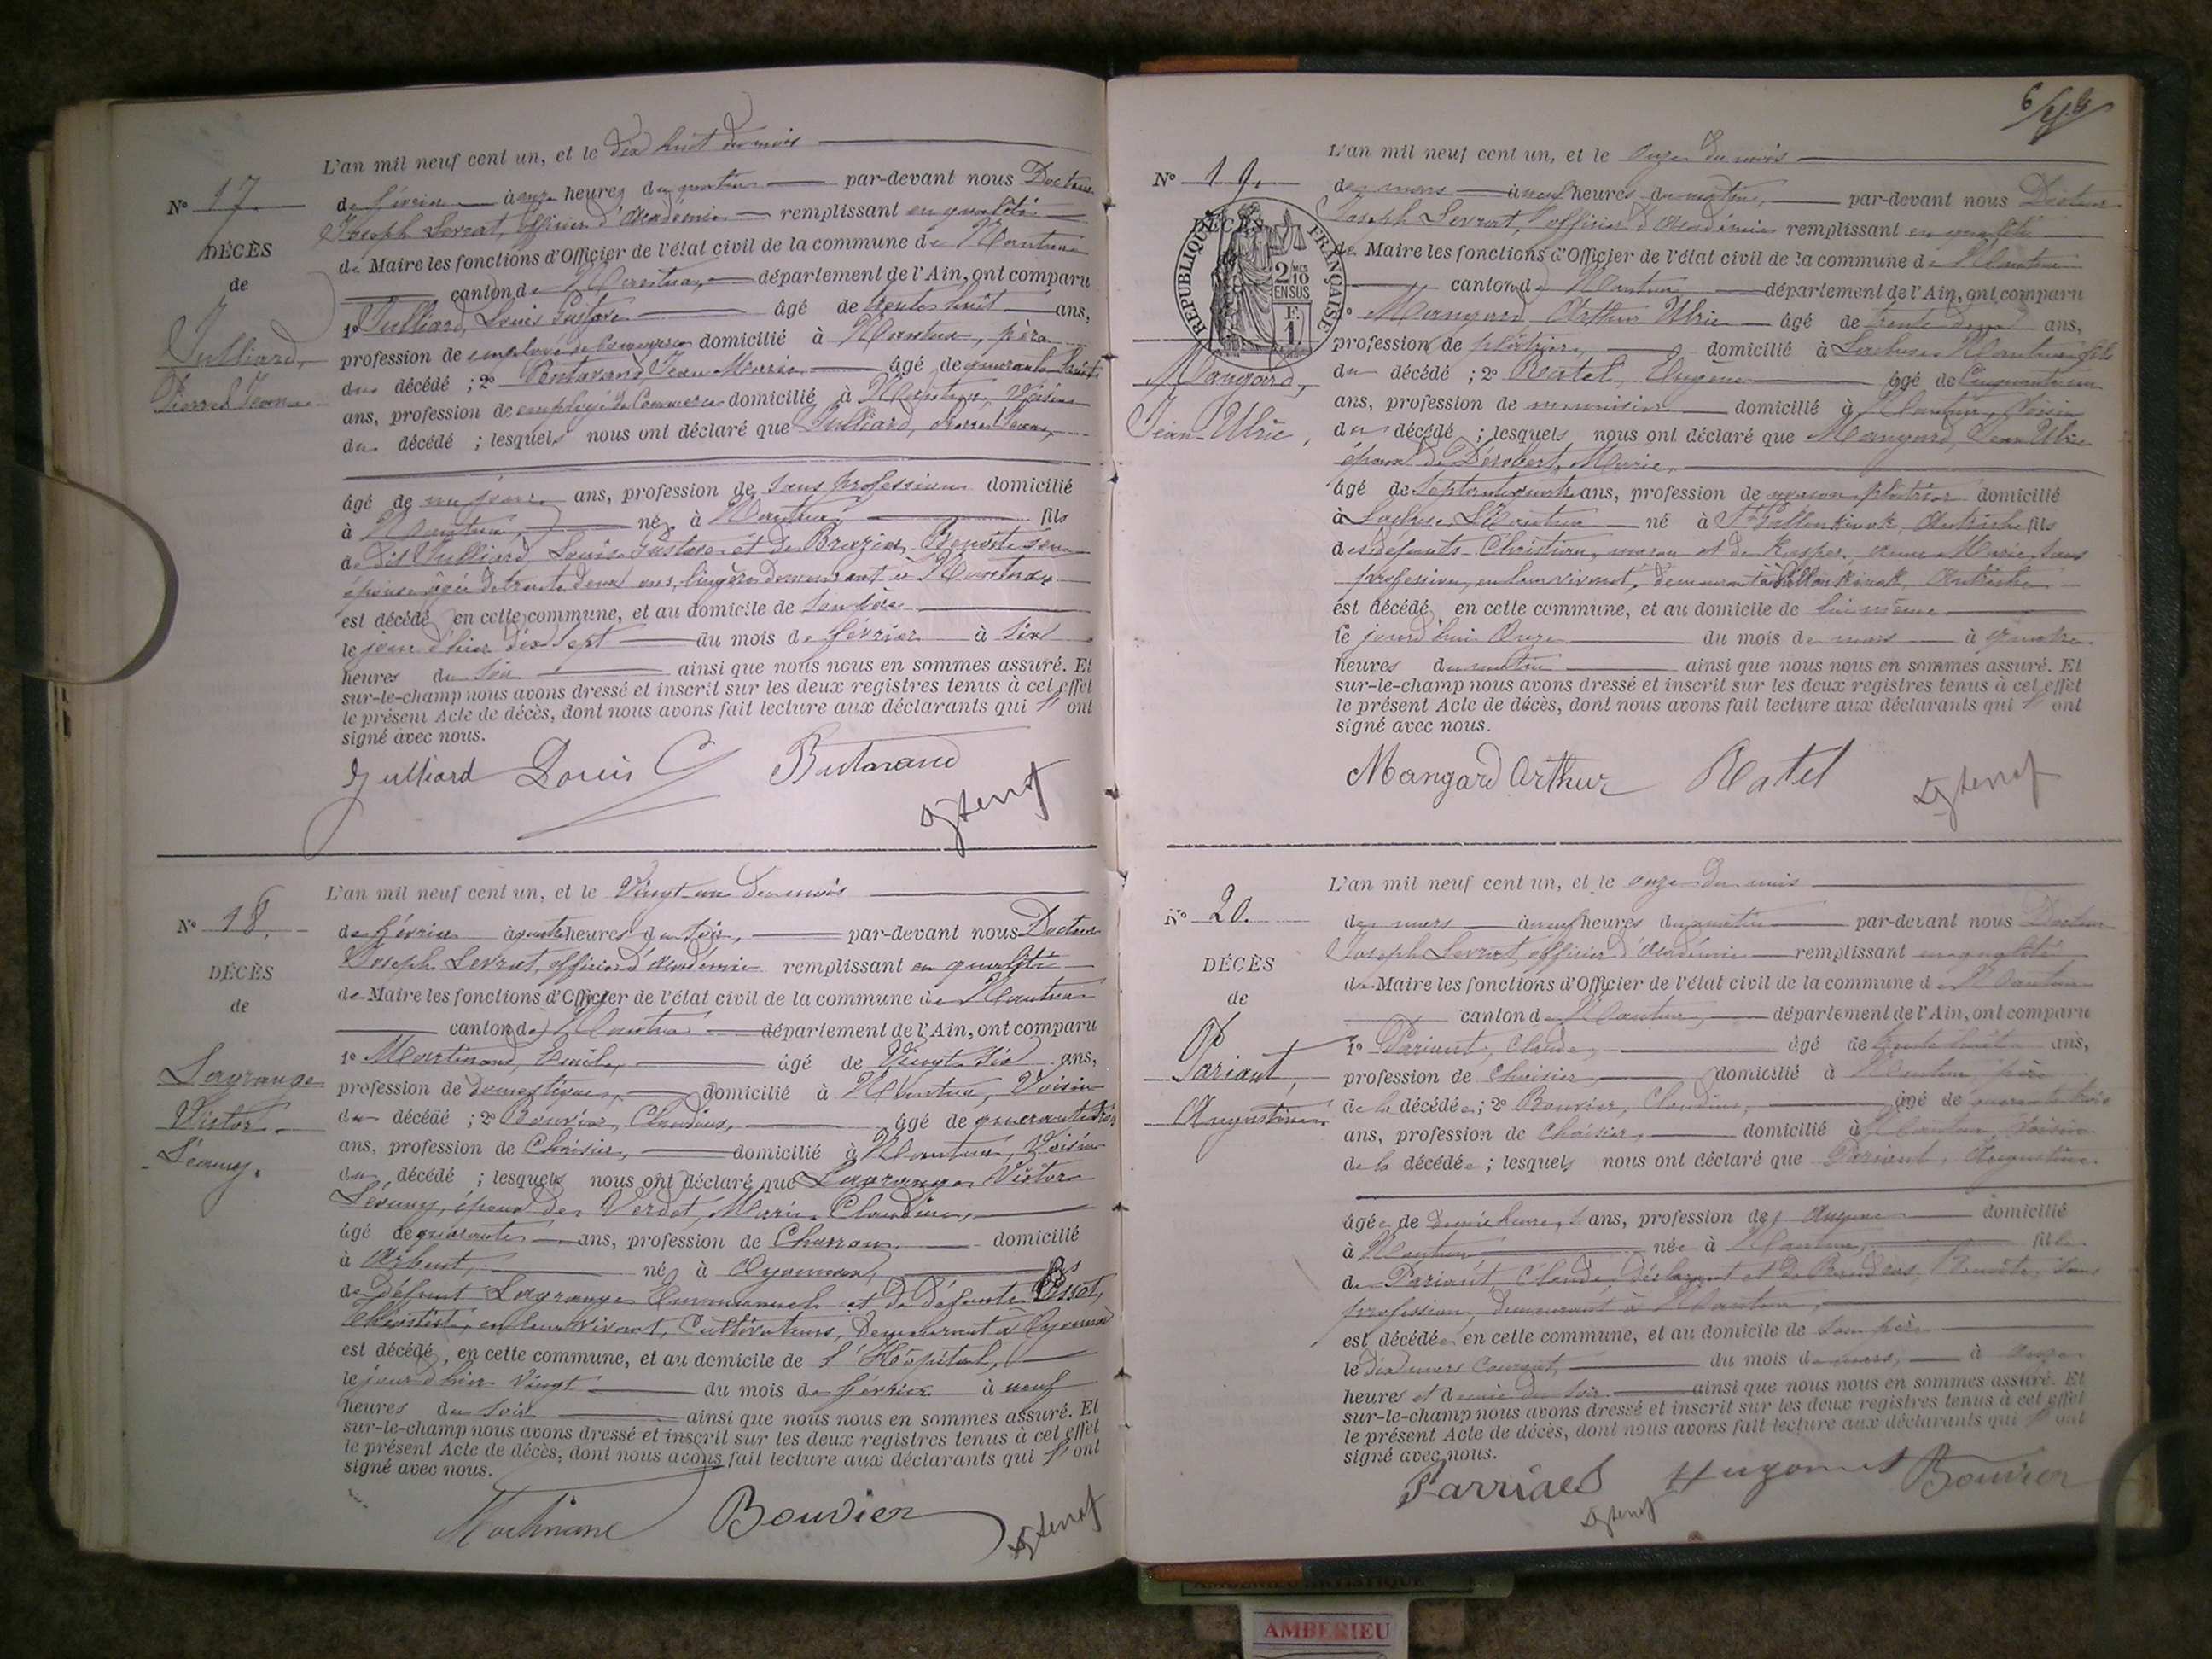 L'an mil neuf cent un, et le dix huit du mois
N° 17.
de février à onze heures du matin par-devant nous Docteur
Joseph Levrat, Officier d'Académie remplissant en qualité
DÉCÈS
de Maire les fonctions d'Officier de l'état civil de la commune de Nantua
de
canton de Nantua, département de l'Ain, ont comparu
Julliard,
1° Julliard, Louis Gustave âgé de trente huit ans,
profession de employé de Commerce domicilié à Nantua, père
Pierre Jean
du décédé ; 2° Jean Marie, âgé de quarante huit
ans, profession de employé de Commerce domicilié à Nantua, Voisin
du décédé ; lesquels nous ont déclaré que Julliard, Pierre Jean,
âgé de un jour ans, profession de sans profession domicilié
à Nantua, né à Nantua, fils
de dit Julliard, Louis Gustave et de Benoîte son
épouse âgée de trente deux ans, lingère demeurant à Nantua
est décédé en cette commune, et au domicile de son père
le jour d'hier dix sept du mois de février à six
heures du soir ainsi que nous nous en sommes assuré. Et
sur-le-champ nous avons dressé et inscrit sur les deux registres tenus à cet effet
le présent Acte de décès, dont nous avons fait lecture aux déclarants qui l' ont
signé avec nous.
Julliard Louis G
L'an mil neuf cent un, et le Vingt un du mois
N° 18.
de février à quatre heures du soir, par-devant nous Docteur
Joseph Levrat, officier d'Académie remplissant en qualité
DÉCÈS
de Maire les fonctions d'Officier de l'état civil de la commune de Nantua
de
canton de Nantua département de l'Ain, ont comparu
Lagrange
1° Martinand, Emile, âgé de Vingt six ans,
profession de domestique, domicilié à Nantua, Voisin
Victor
du décédé ; 2° Bouvier, Claudius, âgé de quarante trois
Léamy.
ans, profession de Choisier, domicilié à Nantua, Voisin
du décédé ; lesquels nous ont déclaré que Lagrange Victor
Léamy, époux de Verdet, Marie Claudine,
âgé de quarante ans, profession de Charron domicilié
à Arbent, né à Oyonnax, fils
de défunt Lagrange Emmanuel et de défunte
en leur vivant, Cultivateurs, demeurant à Oyonnax
est décédé, en cette commune, et au domicile de l'Hôpital,
le jour d'hier Vingt du mois de février à neuf
heures du soir ainsi que nous nous en sommes assuré. Et
sur-le-champ nous avons dressé et inscrit sur les deux registres tenus à cet effet
le présent Acte de décès, dont nous avons fait lecture aux déclarants qui l' ont
signé avec nous.
Martinand Bouvier
L'an mil neuf cent un, et le onze du mois
N° 19.
de mars à neuf heures du matin, par-devant nous Docteur
Joseph Levrat, officier d'Académie remplissant en qualité
DÉCÈS
RÉPUBLIQUE FRANÇAISE
2/10 MES
EN SUS
F. 1
de Maire les fonctions d'Officier de l'état civil de la commune de Nantua
canton de Nantua département de l'Ain, ont comparu
1° Mangard Arthur Ulric âgé de trente deux ans,
profession de plâtrier, domicilié à Lacluse Nantua fils
Mangard,
du décédé ; 2° Ratel, Eugène âgé de Cinquante un
ans, profession de menuisier domicilié à Nantua, Voisin
Jean Ulric,
du décédé ; lesquels nous ont déclaré que Mangard, Jean Ulric
époux de Dérobert, Marie,
âgé de Septante quatre ans, profession de maçon plâtrier domicilié
à Lacluse, Nantua né à Autriche fils
des défunts Christian, maçon et de Kasper, Anne Marie, sans
profession, en leur vivant, demeurant à Autriche
est décédé, en cette commune, et au domicile de lui même
le jourd'hui Onze du mois de mars à quatre
heures du matin ainsi que nous nous en sommes assuré. Et
sur-le-champ nous avons dressé et inscrit sur les deux registres tenus à cet effet
le présent Acte de décès, dont nous avons fait lecture aux déclarants qui l' ont
signé avec nous.
Mangard Arthur Ratel
L'an mil neuf cent un, et le onze du mois
N° 20.
de mars à neuf heures du matin par-devant nous Docteur
Joseph Levrat, officier d'Académie remplissant en qualité
DÉCÈS
de Maire les fonctions d'Officier de l'état civil de la commune de Nantua
de
canton de Nantua, département de l'Ain, ont comparu
Pariaut,
1° Pariaut, Claude, âgé de trente huit ans,
profession de Choisier, domicilié à Nantua, père
Augustine
de la décédée ; 2° Bouvier, Claudius, âgé de quarante trois
ans, profession de Choisier, domicilié à Nantua, Voisin
de la décédée ; lesquels nous ont déclaré que Pariaut, Augustine
âgée de demie heure, ans, profession de domicilié
à Nantua née à Nantua, fille
de Pariaut, Claude, déclarant et de sans
profession, demeurant à Nantua,
est décédée en cette commune, et au domicile de son père
le dix mars Courant, du mois de mars, à onze
heures et demie du soir ainsi que nous nous en sommes assuré. Et
sur-le-champ nous avons dressé et inscrit sur les deux registres tenus à cet effet
le présent Acte de décès, dont nous avons fait lecture aux déclarants qui l' ont
signé avec nous.
Bouvier
AMBERIEU